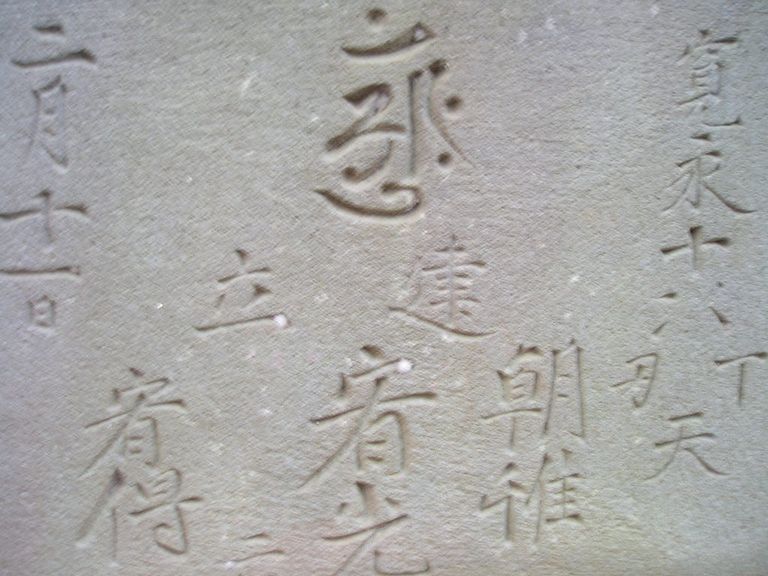 寛永十六丁丑天
朝
建立
宥光
宥得
二月十一日